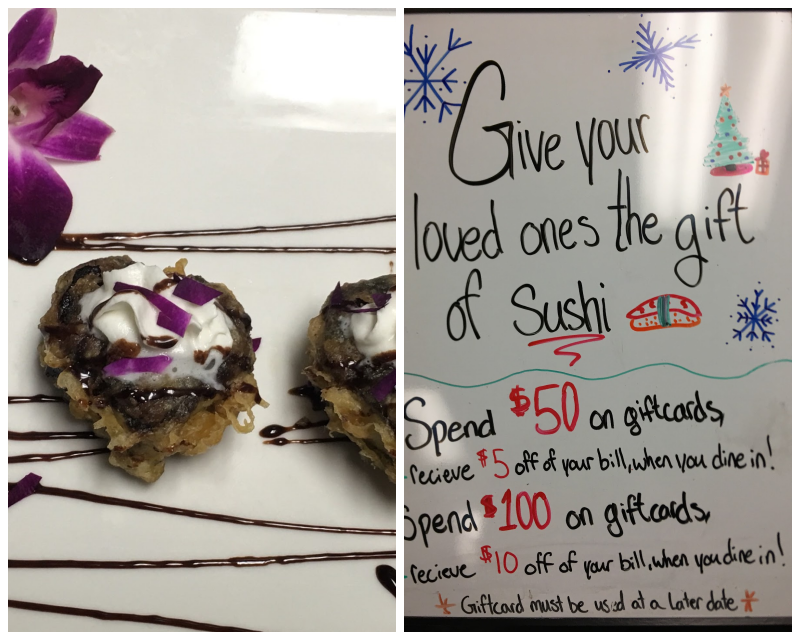 Give your
loved ones the gift
of Sushi
Spend $50 on giftcards,
recieve $5 off of your bill, when you dine in!
Spend $100 on giftcards,
recieve $10 off of your bill, when you dine in!
Giftcard must be used at a later date